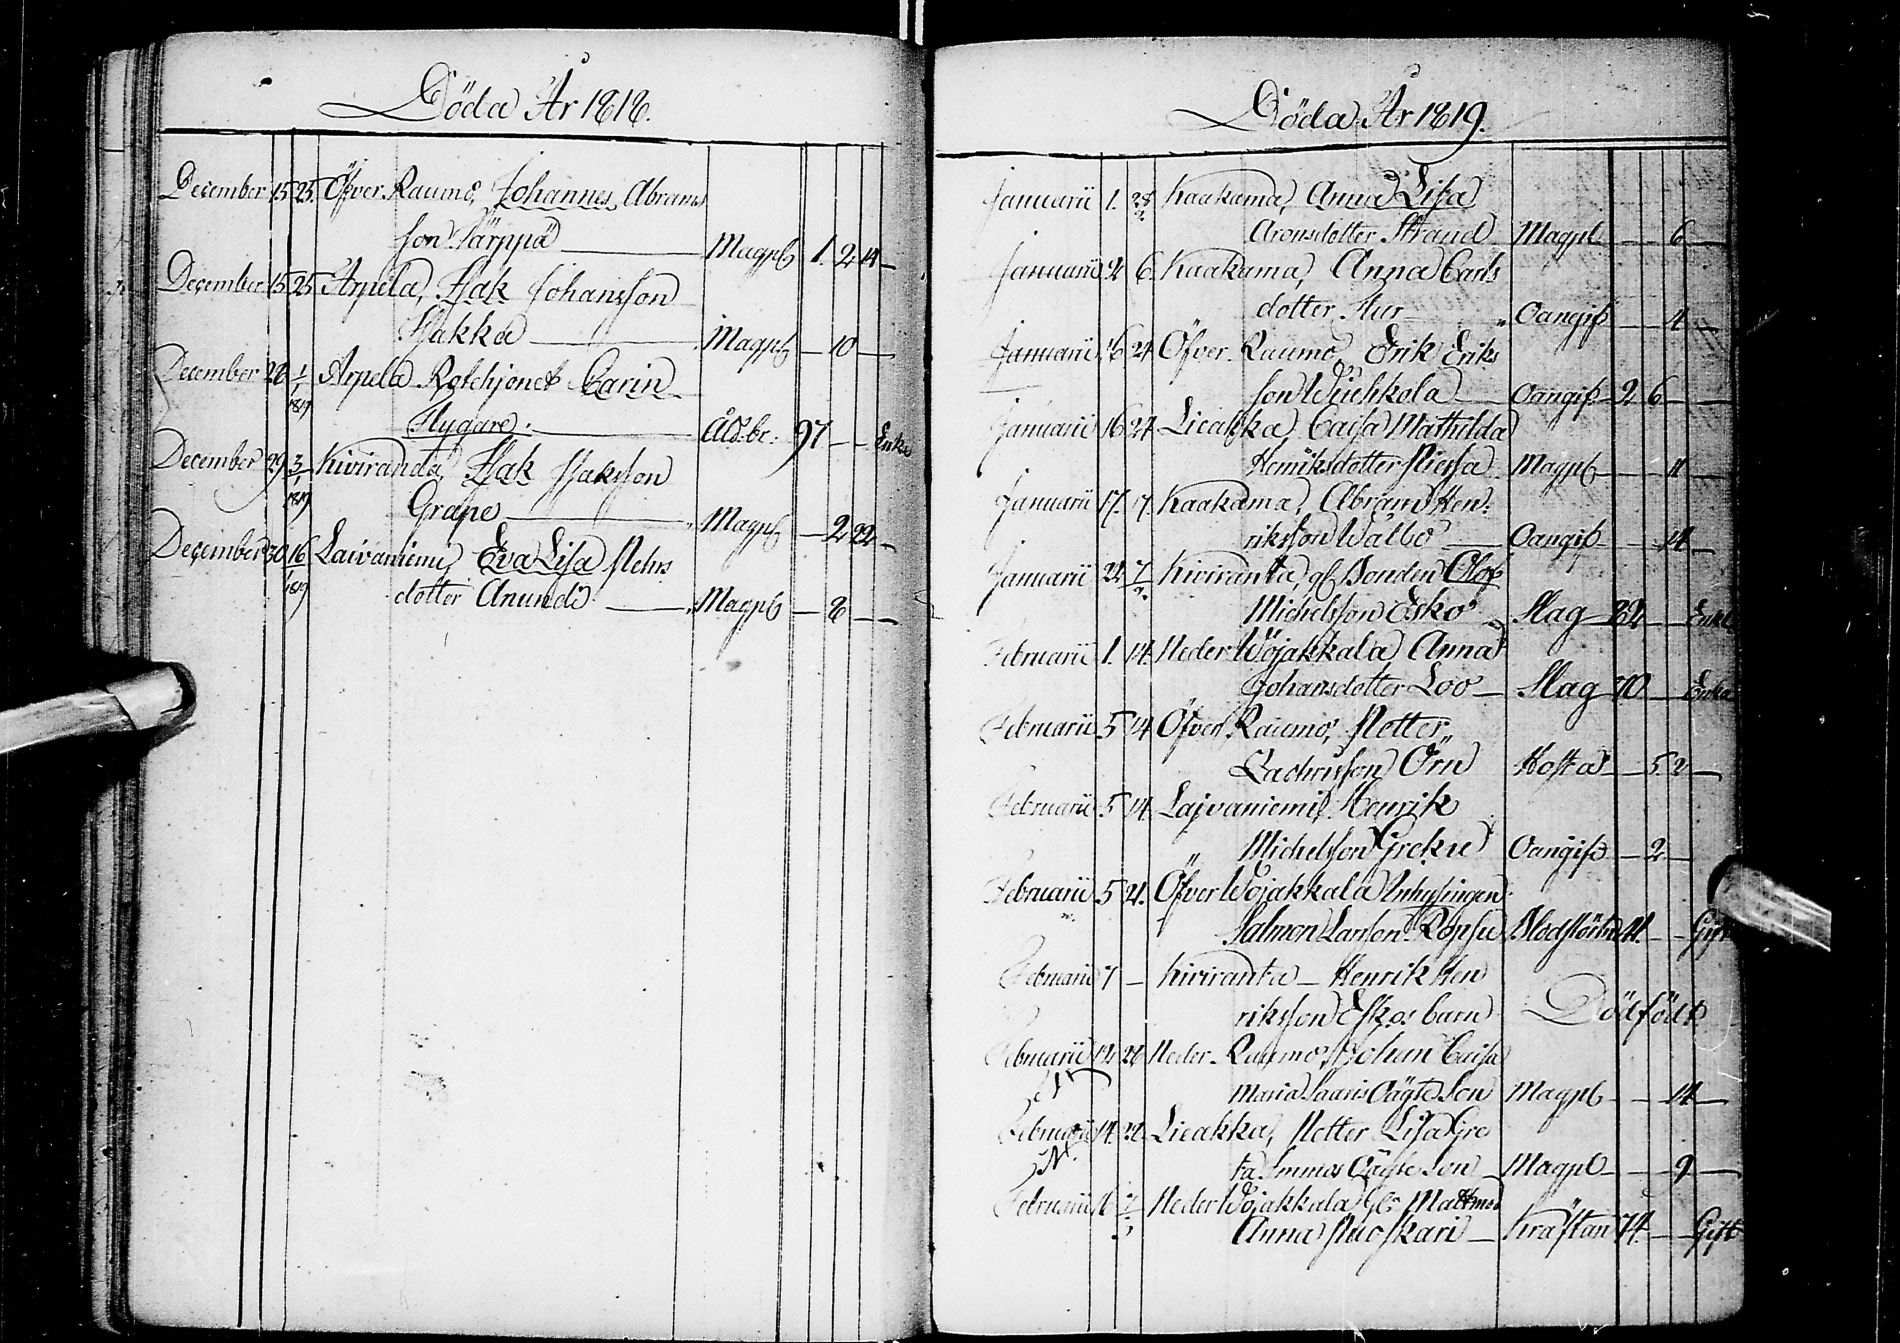 Döda År 1818.
December 15 25 Öfver Raumo, Johannes Abrams
son Särppä Magpl 1. 2 14 —
December 15 25 Arpela, Isak Johansson
Hakka Magpl — 10 —
December 28 1/1 1819 Arpela Rotehjonet Carin
Nygare. Åld.br: 97 — — Enka
December 29 3/1 1819 Kiviranda, Isak Isaksson
Grape Magpl — 2 22 —
December 30 16/1 1819 Laivaniemi, Eva Lisa Nels
dotter Anundi Magpl — 8 —
Döda År 1819.
Januarii 1. 28/2 Kaakama, Anna Lisa
Aronsdotter Strand Magpl — — 6 —
Januarii 2 6. Kaakama, Anna Carls
dotter Oangifv — — 4 —
Januarii 16 24 Öfver-Raumo, Erik Eriks
son Oangifv 2 6 —
Januarii 16 24 Lieakka Caisa Mathilda
Henriksdotter Magpl — — 11 —
Januarii 17. 17. Kaakama, Abram Hen:
riksson Walbo Oangifv — — 14 —
Januarii 24 7/2 Kiviranta, gl. Bonden Olof
Michelsson Esko Slag 82 — — Enkl
Februarii 1. 14. Neder Wojakkala Anna
Johansdotter Loo — Slag 70 — — Enka
Februarii 5 14 Öfver Raumo, Petter
Zachrisson Örn Hosta — 5 2 —
Februarii 5 14 Lajvaniemi, Henrik
Michelsson Greku Oangifv — 2 —
Februarii 5 21. Öfver Wojakkala Inhysingen
Salmon Larson Ropsu Blodstörtn 41. — — Gift
Februarii 7 — Kiviranta — Henrik Hen
riksson Eskos barn Dödfödt
Februarii 12 28 Neder-Raumo, Johan Caisa
Maria Saaris Oägta Son Magpl — — 14 —
Februarii 14. 28. Lieakka, Petter Lisa Gre
ta Immos Oägta Son — Magpl — — 9 —
Februarii 16 7/3 Neder Wojakkala Gl. Matmor
Anna Nuoskari — Kräftan 74. — — Gift